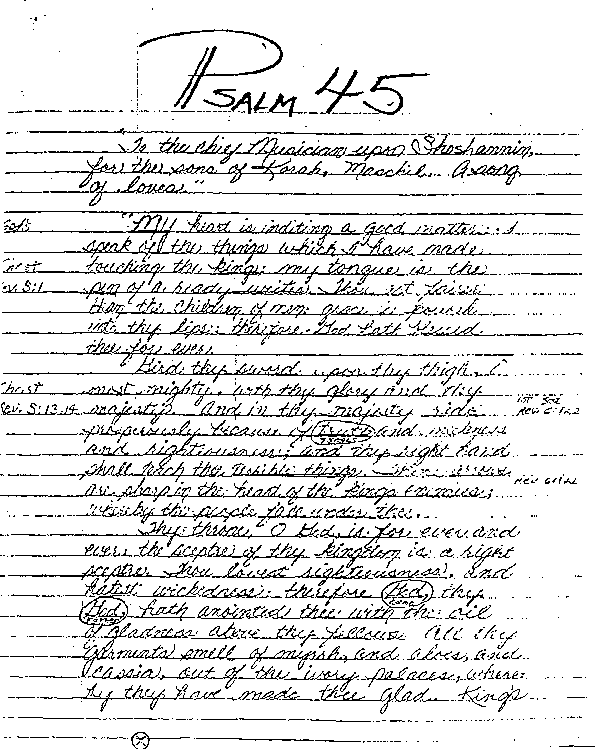 PSALM 45
"To the chief Musician upon Shoshannim,
for the sons of Korah, Maschil. A song
of loves"
"My heart is inditing a good matter: I
speak of the things which I have made
Christ touching the king: my tongue is the
Rev. 5:1 pen of a ready writer. Thou art fairer
than the children of men: grace is poured
into thy lips: therefore God hath blessed
thee for ever.
Gird thy sword upon thy thigh, O
Christ most mighty, with thy glory and thy
Rev. 5:13,14 majesty. And in thy majesty ride
prosperously because of truth and meekness
and righteousness; and thy right hand
shall teach thee terrible things. Thine arrows
are sharp in the heart of the kings enemies;
whereby the people fall under thee.
Thy throne, O God, is for ever and
ever: the sceptre of thy kingdom is a right
sceptre. Thou lovest righteousness, and
hatest wickedness: therefore God, thy
God, hath anointed thee with the oil
of gladness above thy fellows. All thy
garments smell of myrrh, and aloes, and
cassia, out of the ivory palaces, where-
by they have made thee glad. Kings